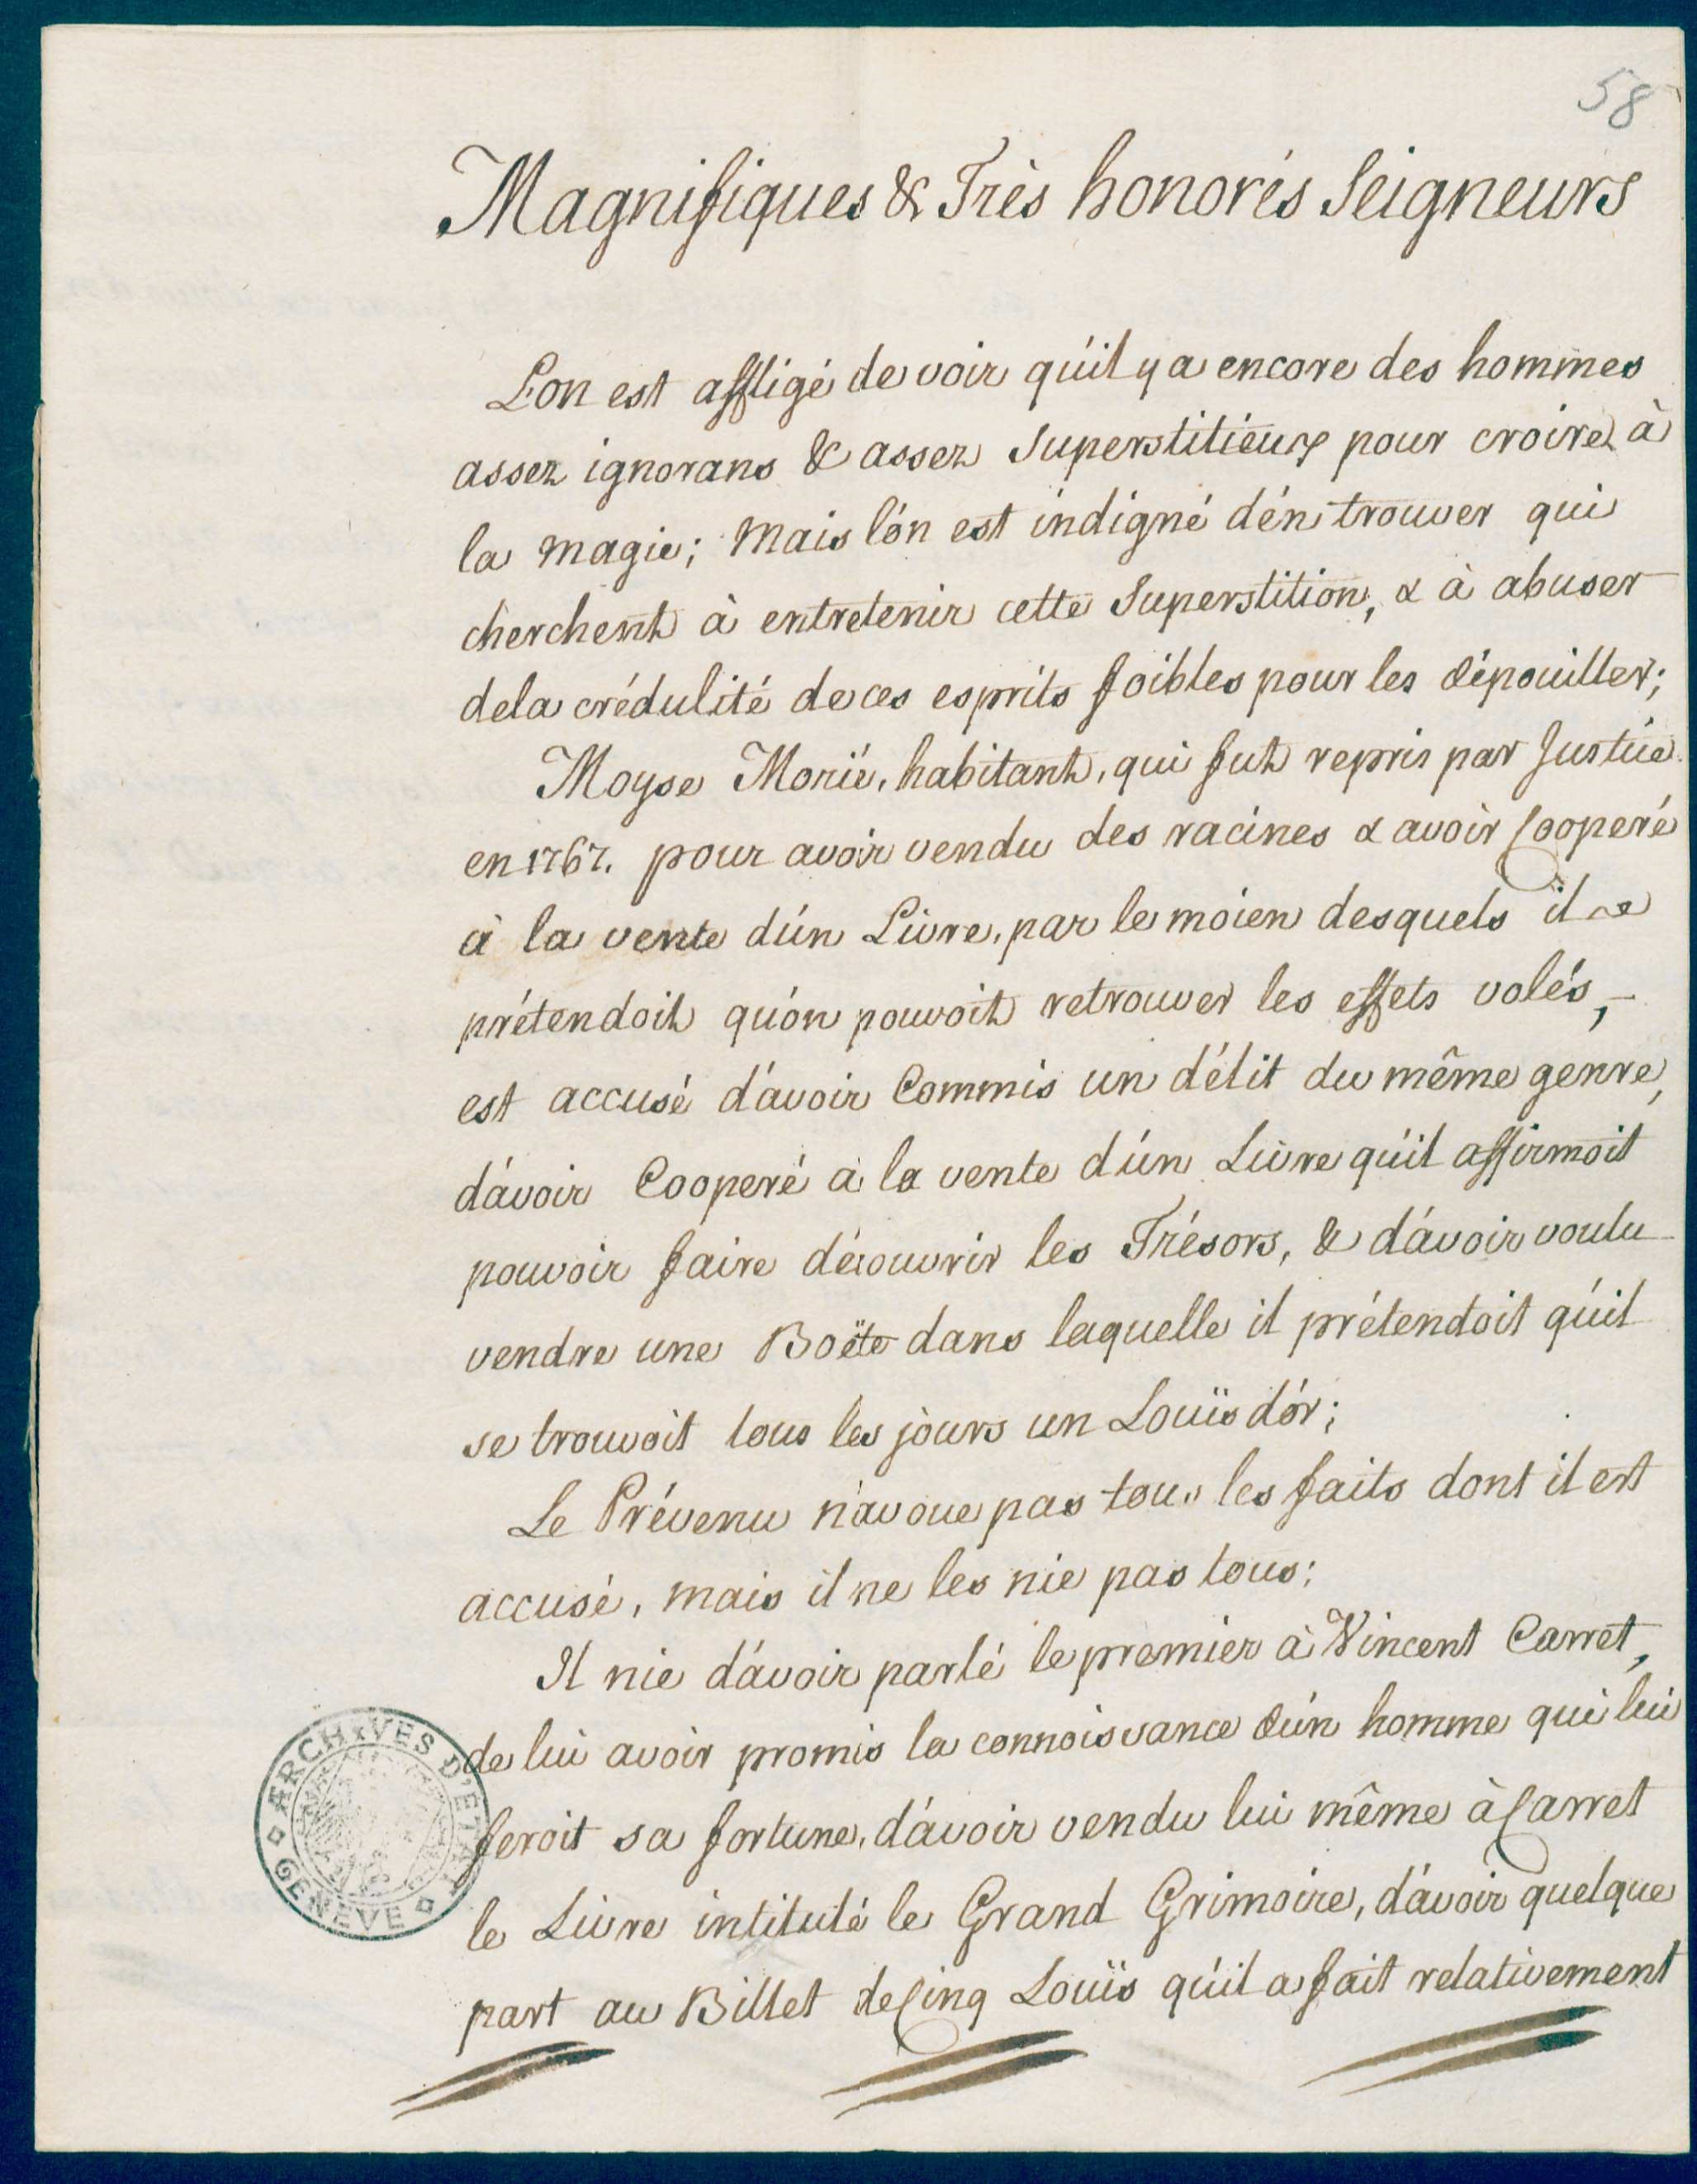 58
Magnifiques & Très honorés Seigneurs
L'on est affligé de voir qu'il y a encore des hommes
assez ignorans & assez Superstitieux pour croire à
la magie; Mais l'on est indigné d'en trouver qui
cherchent à entretenir cette Superstition, & à abuser
dela crédulité de ces esprits foibles pour les dépouiller;
Moyse Morié, habitant, qui fut repris par Justice
en 1767. pour avoir vendu des racines & avoir Cooperé
à la vente d'un Livre, par le moien desquels il
prétendoit qu'on pouvoit retrouver les effets volés,
est accusé d'avoir Commis un délit du même genre,
d'avoir Cooperé à la vente d'un Livre qu'il affirmoit
pouvoir faire découvrir les Trésors, & d'avoir voulu
vendre une Boëte dans laquelle il prétendoit qu'il
se trouvoit tous les jours un Louïs d'or;
Le Prévenu n'avoue pas tous les faits dont il est
accusé, mais il ne les nie pas tous;
Il nie d'avoir parlé le premier à Vincent Carret,
de lui avoir promis la connoissance d'un homme qui lui
feroit sa fortune, d'avoir vendu lui même à Carret
le Livre intitulé le Grand Grimoire, d'avoir quelque
part au Billet de Cinq Louïs qu'il a fait relativement
ARCHIVES D'ETAT
GENEVE